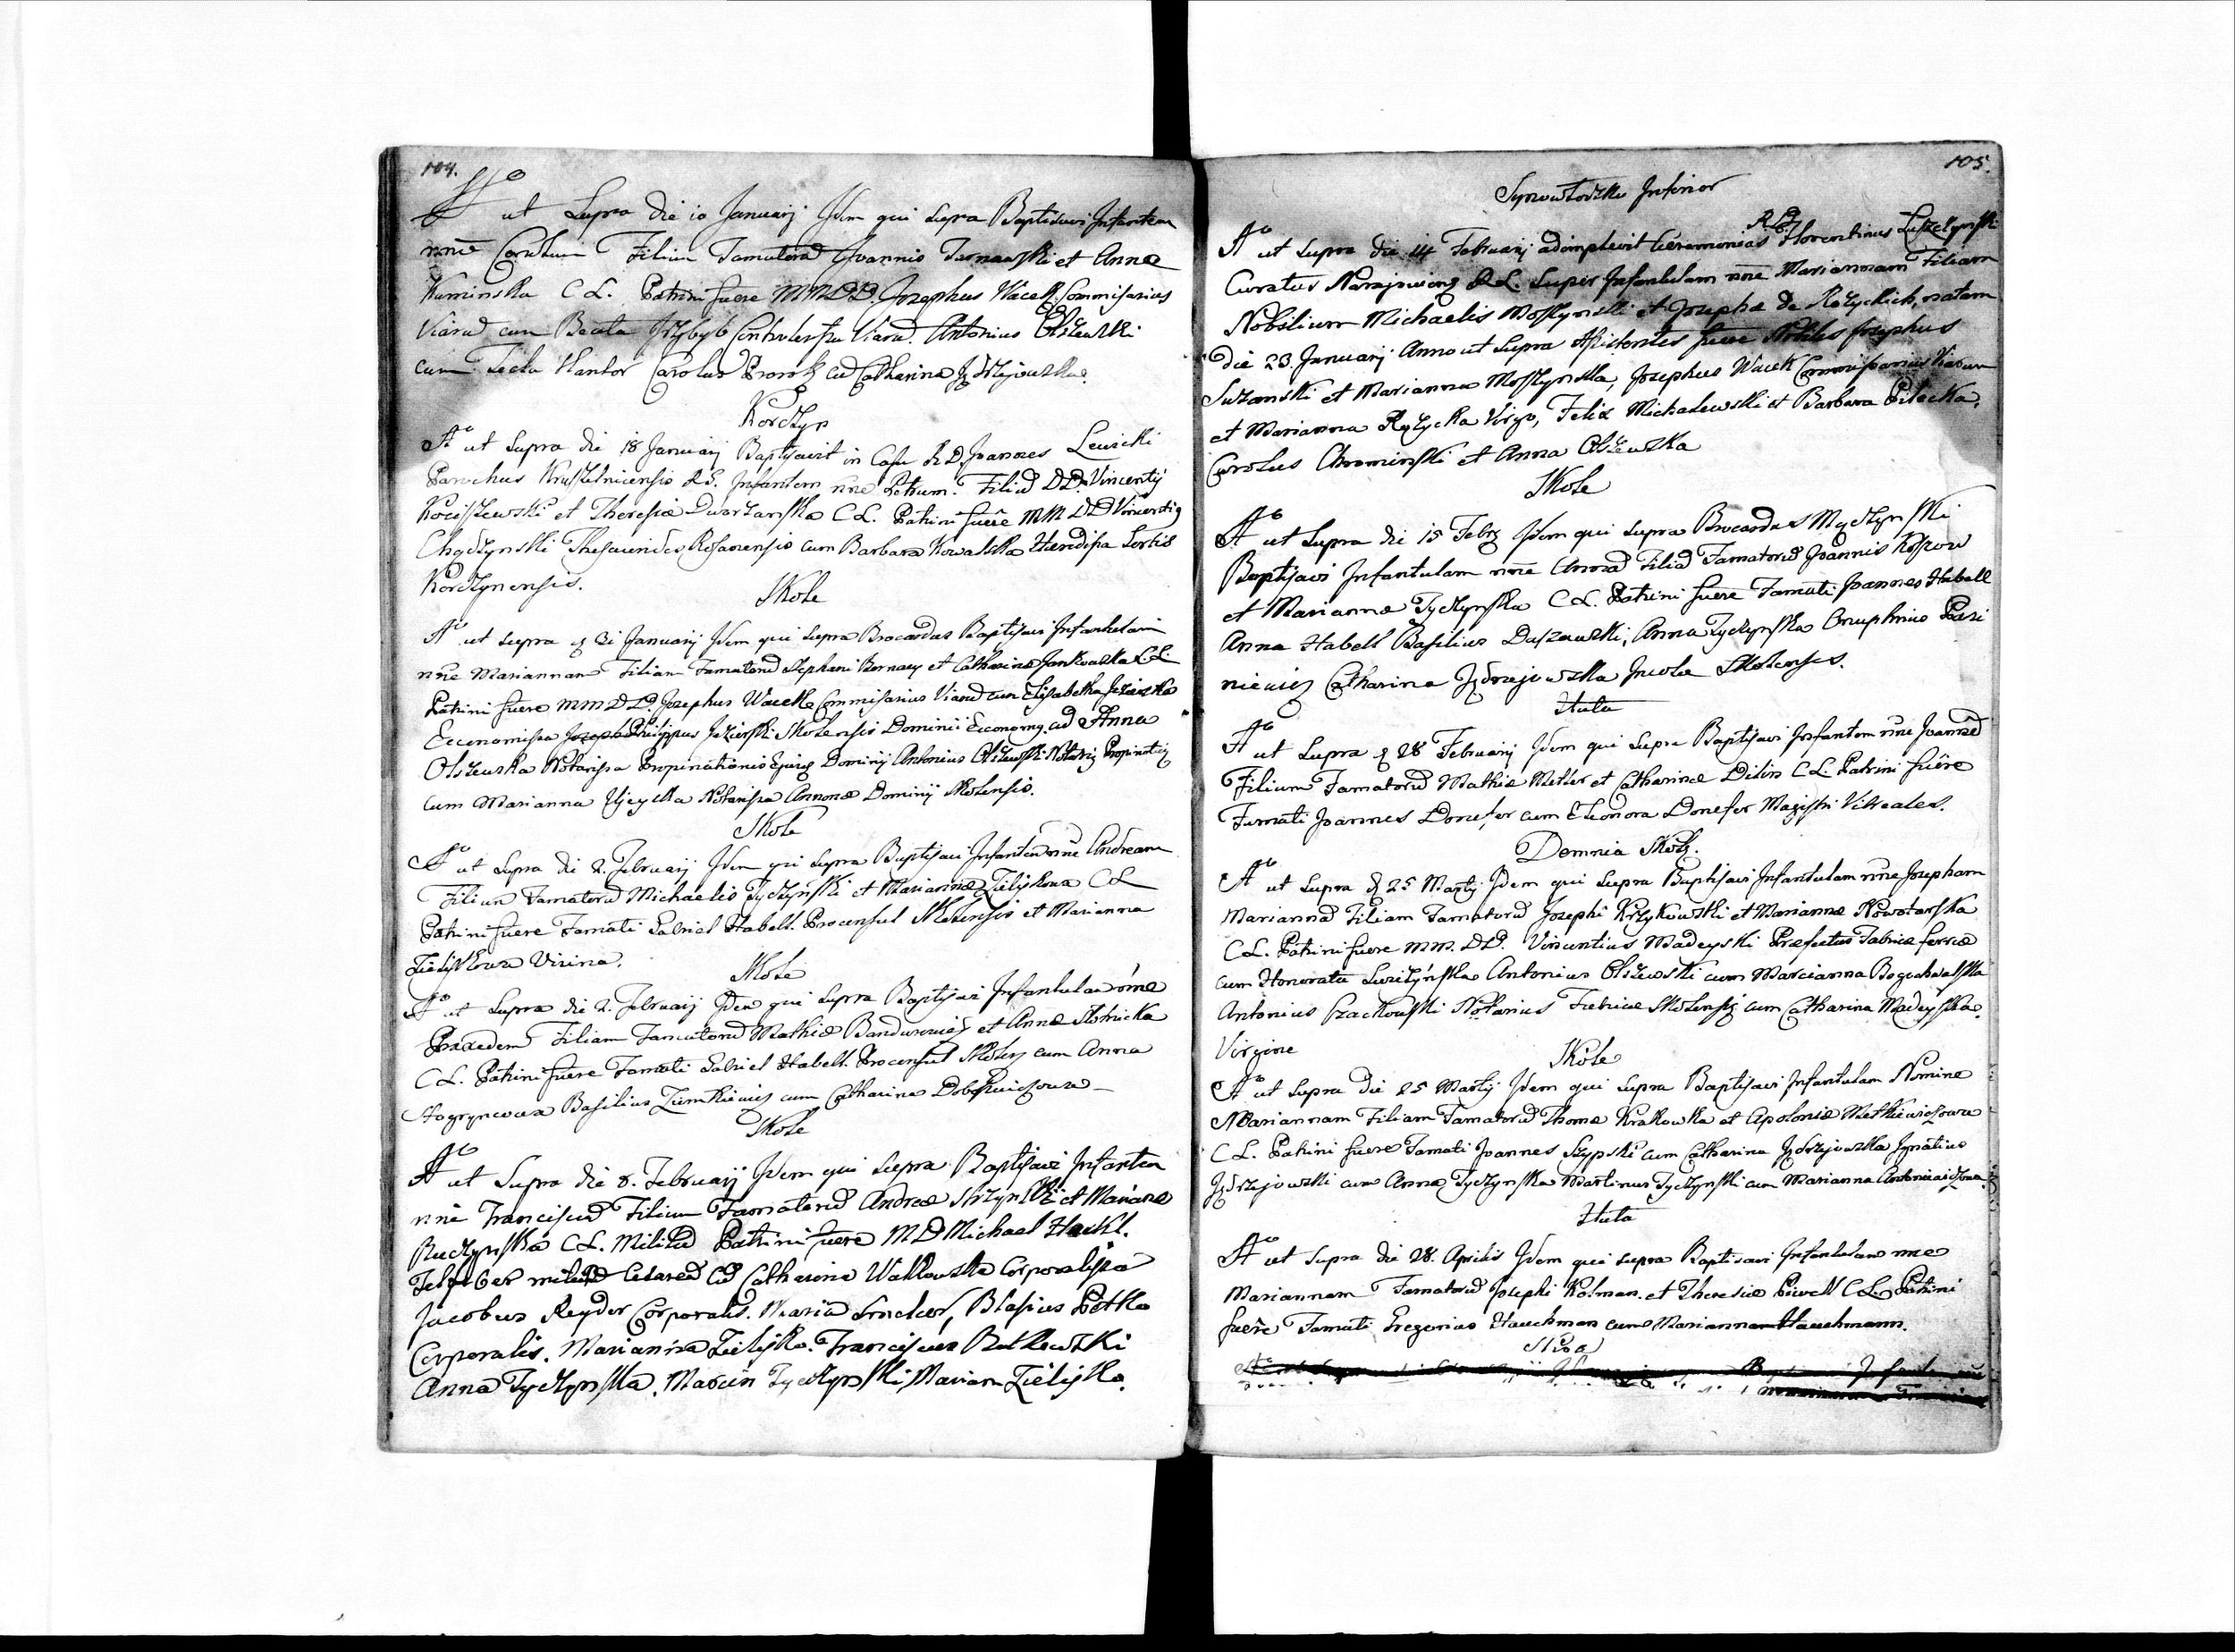 104.
Aº ut Supra die 10 Januarij Idem qui supra Baptisavi Infantem
nne Carolum Filium Famatorū Joannis Tarnawski et Annæ
Kaminska C. L. Patrini fuere MM DD. Josephus Wacek Commissarius
Viarū cum Beata Antonius Olszewski
cum Tecla Kantor Carolus cū Catharina Jędrzejowska.
Kordzyn
Aº ut Supra die 18 Januarij Baptisavit in Casu R. D. Joannes Lewicki
Parochus Kruszelnicensis Infantem nne Petrum. Filiū DD. Vincentij
Kociszewski et Theresiæ Dwarzanska C. L. Patrini fuere MM DD Vincentiq
Chądzynski Rosaorensis cum Barbara Kowalska Hæredissa Sortis
Kordzynensis.
Skole
Aº ut supra 31 Januarij Idem qui supra Brocardus Baptisavi Infantulam
nne Mariannam Filiam Famatorū Stephani Bernacy et Catharinæ Jankowska C. L.
Patrini fuere MM DD. Josephus Wacek Commissarius Viarū cum Elisabetha Jezierska
Economissa Philippus Jezierski Skolensis Dominii Economq cū Anna
Olszewska Notarissa Propinationis Ejusq Dominij Antonius Olszewski Notariq Propinatiõ
cum Marianna Ujeycka Notarissa Annonæ Dominij Skolensis.
Skole
Aº ut Supra die 2. Februarij Idem qui supra Baptisavi Infantem nne Andream
Filium Famatorū Michaelis Tyczynski et Mariannæ Zieliskowa C L
Patrini fuere Famati Gabriel Habell. Proconsul Skolensis et Marianna
Zieliskowa Vicina.
Skole
Aº ut Supra die 2. Februarij Idem qui supra Baptisavi Infantulam nne
Praxedem Filiam Famatorū Mathiæ Bandurowicz et Annæ Slotnicka
C L. Patrini fuere Famati Gabriel Habell. Proconsul Skolens cum Anna
Hogrynowa Basilius Zienkiewicz cum Catharina
Skole
Aº ut Supra die 8. Februarij Idem qui supra Baptisavi Infantem
nne Franciscū Filium Famatorū Andreæ et Mariannæ
Ruczynska C L. Militū Patrini fuere M D Michael Hackl.
militū Cesareū cū Catharina Walkowska Corporalissa
Jacobus Reyder Corporalis. Maria Blasius Petka
Corporalis. Marianna Zieliska. Franciscus Rutkowski
Anna Tyczynska. Marcin Tyczynski Mariana Zieliska.
105.
Synowodzko Inferior
Aº ut Supra die 14 Februarij adimplevit Ceremonias R. D. Florentinus Luszczynski
Curatus R. L. super Infantulam nne Mariannam Filiam
Nobilium Michaelis Moszynski et Josephæ de Rozyckich, natam
die 23 Januarij Anno ut Supra Assistentes fuere Nobiles Josephus
Suzanski et Marianna Moszynska, Josephus Wacek Commissarius Viarum
et Marianna Rozycka Virgo, Felix Michalewski et Barbara Pilecka.
Carolus Chrominski et Anna Olszewska
Skole
Aº ut Supra die 15 Febr Idem qui supra Brocardus Mączynski
Baptisavi Infantulam nne Annā Filiā Famatorū Joannis
et Mariannæ Tyczynska C L. Patrini fuere Famati Joannes Habell
Anna Habell Basilius Daszewski, Anna Tyczynska Onuphrius Pasi
niewicz Catharina Jędrzejowska Incolæ Skolenses.
Huta
Aº ut Supra 28 Februarij Idem qui supra Baptisavi Infantem nne Joannē
Filium Famatorū Mathiæ Metler et Catharinæ C L. Patrini fuere
Famati Joannes Donefer cum Eleonora Donefer Magistri Vitreales.
Demnia Skolz.
Aº ut Supra 25 Martij Idem qui supra Baptisavi Infantulam nne Josepham
Mariannā Filiam Famatorū Josephi Krzykowski et Mariannæ Nowotarska
C. L. Patrini fuere MM. DD. Vincentius Madeyski Præfectus Fabricæ ferreæ
cum Honorata Antonius Olszewski cum Marcianna Boguchwalska
Antonius Czackowski Notarius Fabricæ Skolensq cum Catharina Madeyska.
Virgine
Skole
Aº ut Supra die 25 Martij Idem qui supra Baptisavi Infantulam Nomine
Mariannam Filiam Famatorū Thomæ Krakowka et Apoloniæ Metkiewiczowa
C L. Patrini fuere Famati Joannes Szypski cum Catharina Jędrzejowska Ignatius
Jędrzejowski cum Anna Tyczynska Martinus Tyczynski cum Marianna Antoniewiczowa
Huta
Aº ut Supra die 28. Aprilis Idem qui supra Baptisavi Infantulam nne
Mariannam Famatorū Josephi Kolman. et Theresiæ Piwell C L. Patrini
fuere Famati Gregorius Hauchman cum Mariannam Hauchmann.